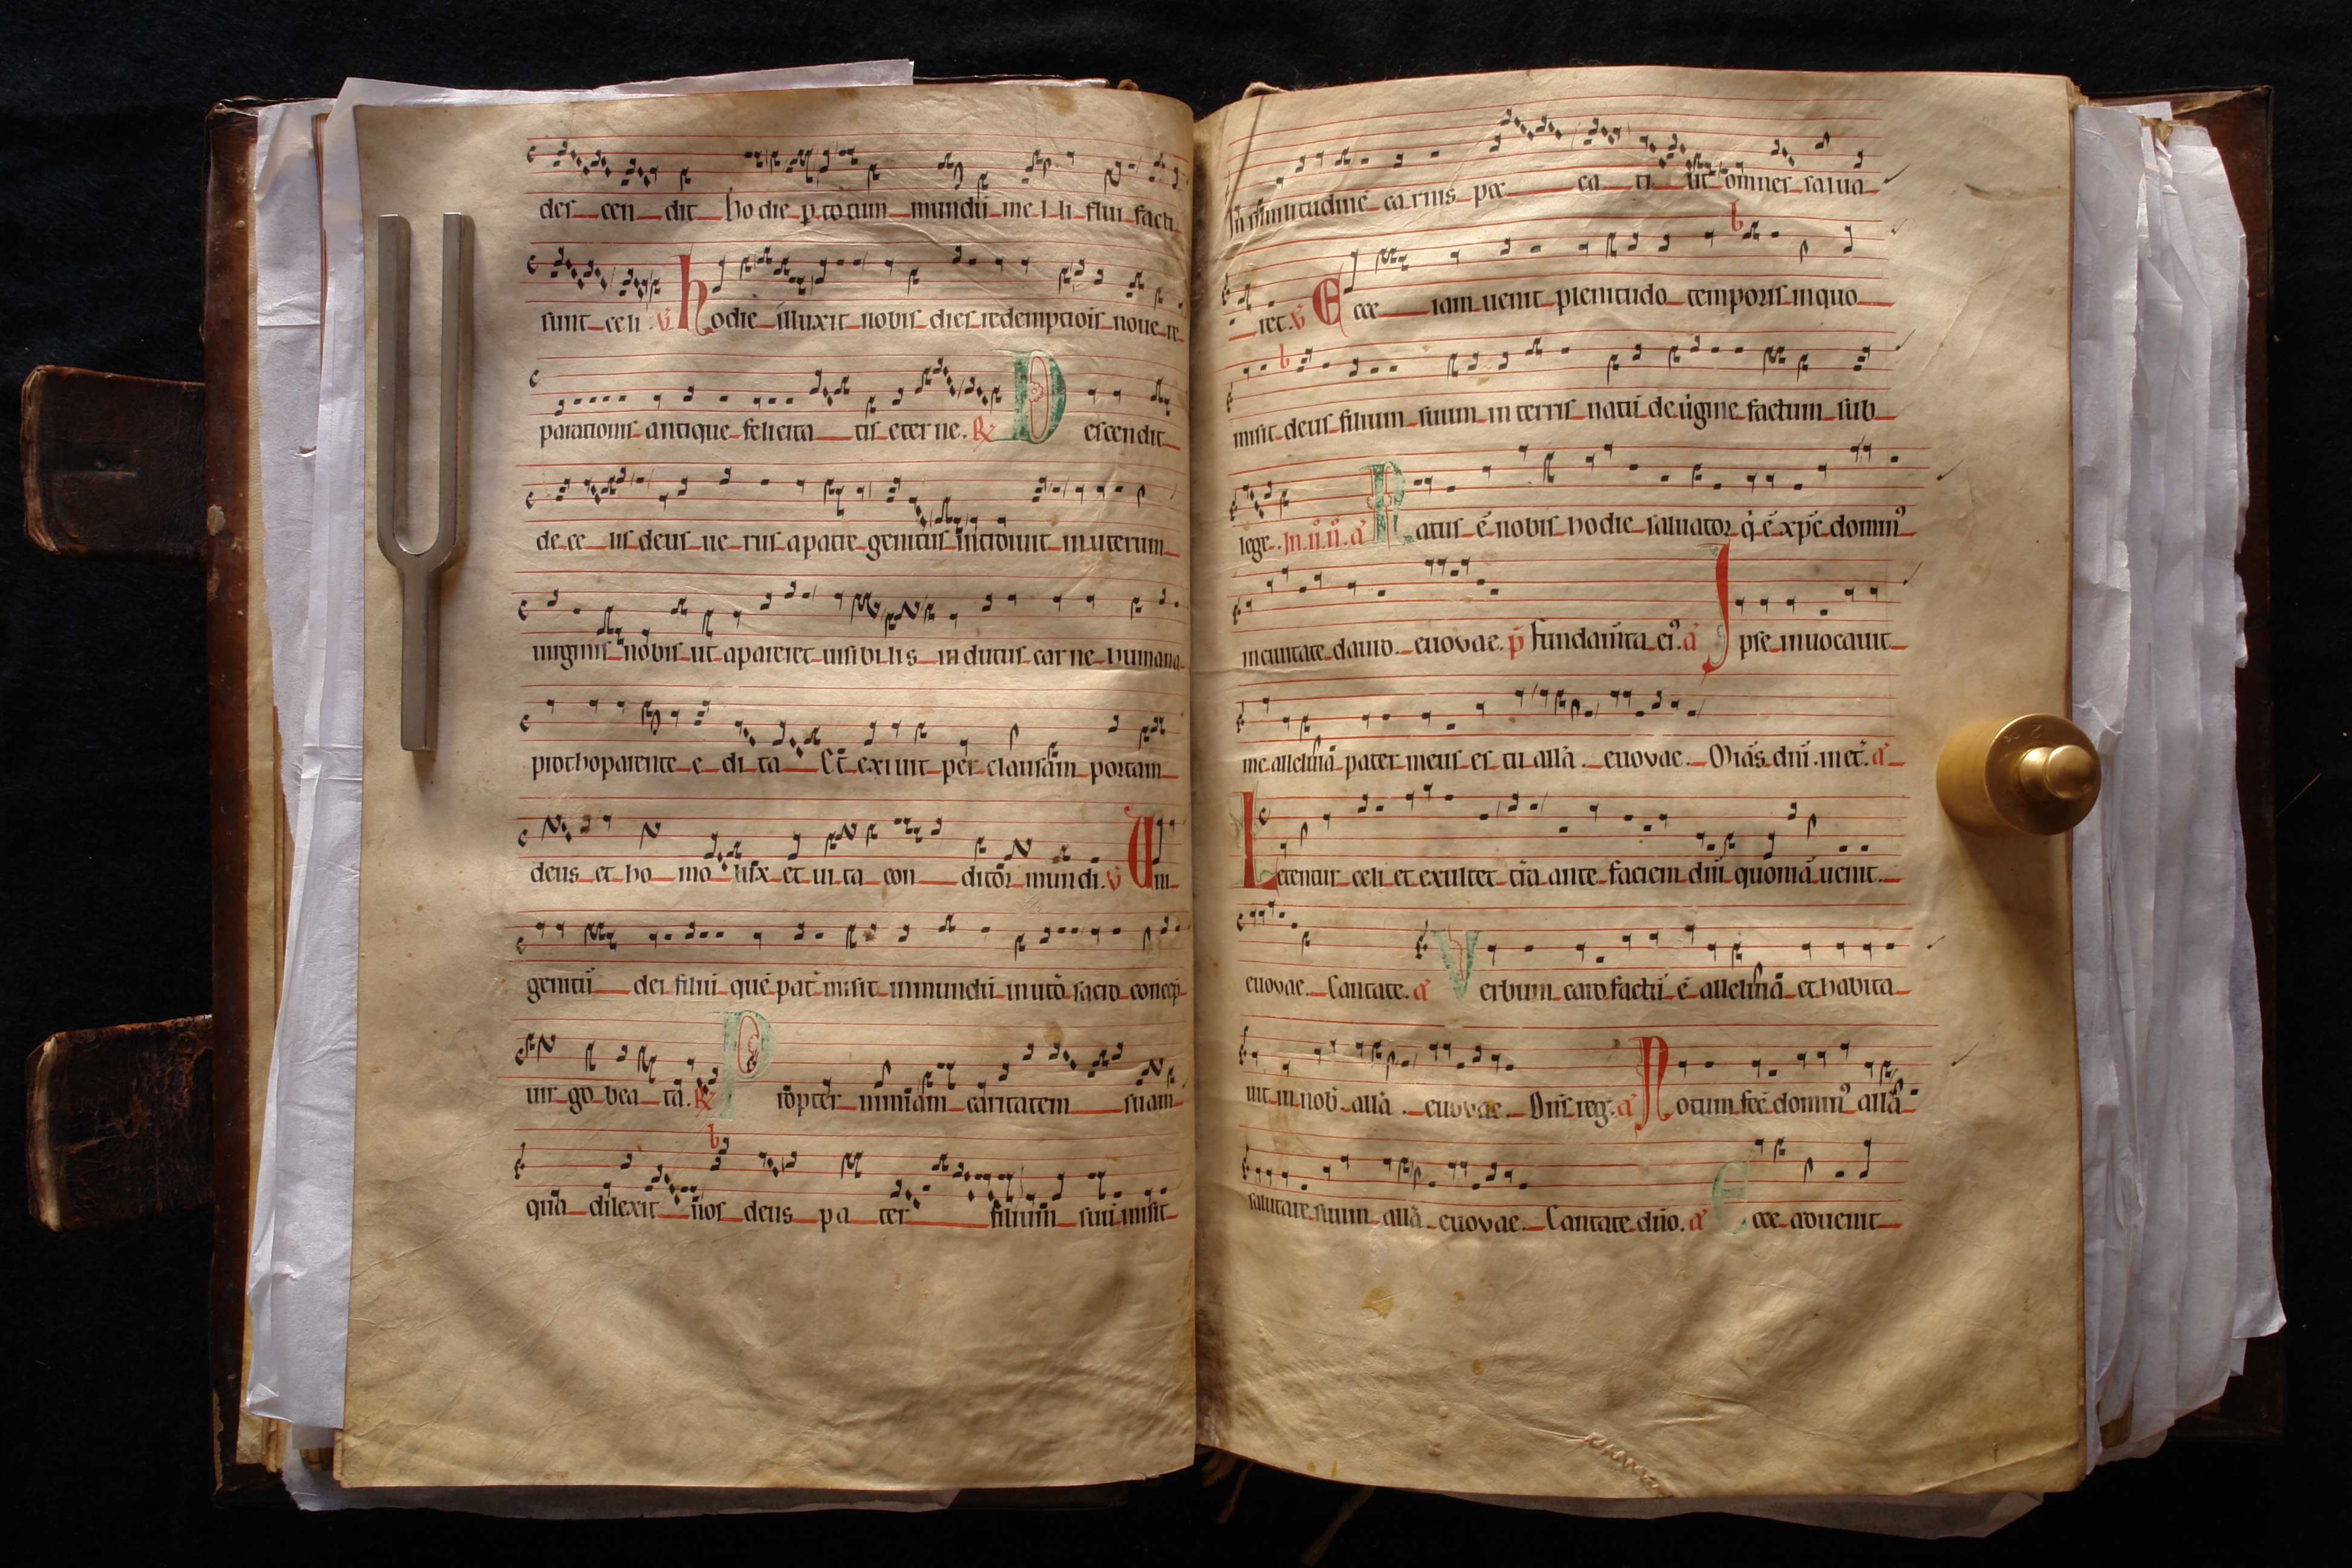 des cen dit ho die p totum mundū me l li flui facti
sunt celi. V̄ hodie illuxit nobis dies redemptiōis noue re
parationis antique felicita tis eter ne. R̄ Descendit
de ce lis deus ue rus a patre genitus introiuit in uterum
uirginis nobis ut apareret uisibi lis in dutus car ne humana
prothoparente e di ta Et exiuit per clausam portam
deus et ho mo lux et ui ta con ditor mundi. V̄ Uni
genitū dei filiū quē pat̄ misit in mundū in utō sacro concep̄
uir go bea ta. R̄ Propter nimiam caritatem suam
qua dilexit nos deus pa ter filium suū misit
In similitudinē carnis pec ca ti ut omnes salua
ret. V̄ Ecce iam uenit plenitudo temporis in quo
misit deus filium suum in terris natū de uĩgine factum sub
lege. In .ii. ñ. a᷎ Natus ē nobis hodie saluator q̇ ē xp̄c domin᷒
in ciuitate dauid. euovae. p̄ fundam̄ta ei᷒. a᷎ Ipse inuocauit
me alleluiā pater meus es tu allā. euovae. Mĩas dnĩ. in et̄. a᷎
Letentur celi et exultet tr̄a ante faciem dnĩ quoniā uenit.
euovae. Cantate. a᷎ Verbum caro factū ē alleluiā et habita
uit in nob̄. allā. euovae. Dn̄s reg̃. a᷎ Notum fec̄ domin᷒ allā
salutare suum allā euovae. Cantate dnō. a᷎ Ecce aduenit